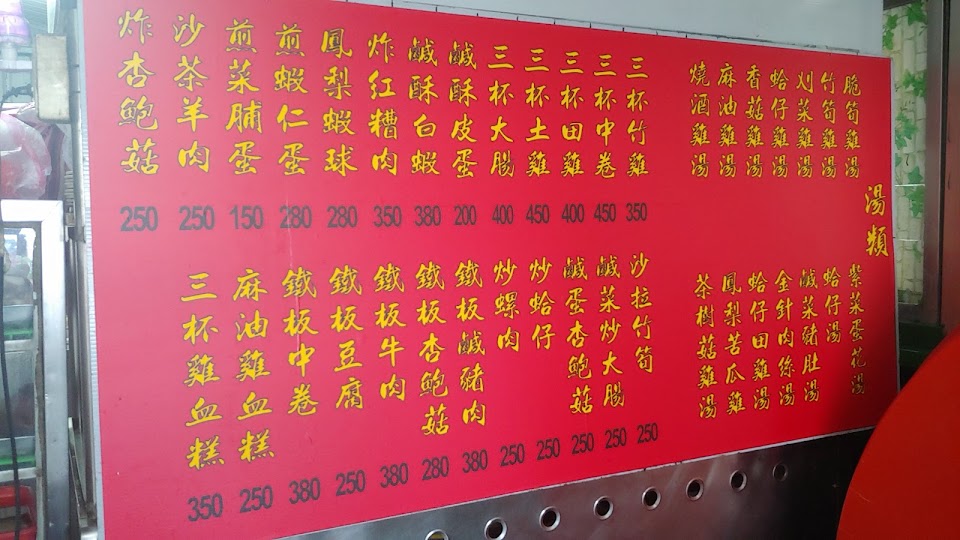 湯類
脆筍雞湯
竹筍雞湯
刈菜雞湯
蛤仔雞湯
香菇雞湯
麻油雞湯
燒酒雞湯
紫菜蛋花湯
蛤仔湯
鹹菜豬肚湯
金針肉絲湯
蛤仔田雞湯
鳳梨苦瓜雞
茶樹菇雞湯
三杯竹雞 350
三杯中卷 450
三杯田雞 400
三杯土雞 450
三杯大腸 400
鹹酥皮蛋 200
鹹酥白蝦 380
炸紅糟肉 350
鳳梨蝦球 280
煎蝦仁蛋 280
煎菜脯蛋 150
沙茶羊肉 250
炸杏鮑菇 250
沙拉竹筍 250
鹹菜炒大腸 250
鹹蛋杏鮑菇 250
炒蛤仔 250
炒螺肉 250
鐵板鹹豬肉 380
鐵板杏鮑菇 280
鐵板牛肉 380
鐵板豆腐 250
鐵板中卷 380
麻油雞血糕 250
三杯雞血糕 350